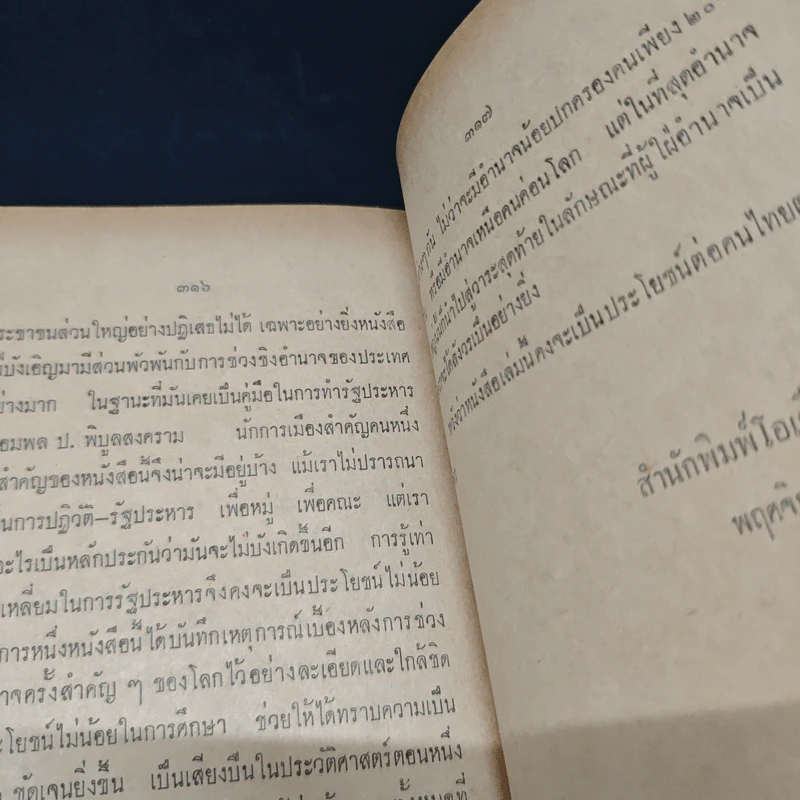 ๓๑๖
ระชาชนส่วนใหญ่อย่างปฏิเสธไม่ได้ เฉพาะอย่างยิ่งหนังสือ
บังเอิญมามีส่วนพัวพันกับการช่วงชิงอำนาจของประเทศ
ย่างมาก ในฐานะที่มันเคยเป็นคู่มือในการทำรัฐประหาร
อมพล ป. พิบูลสงคราม นักการเมืองสำคัญคนหนึ่ง
สำคัญของหนังสือนี้จึงน่าจะมีอยู่บ้าง แม้เราไม่ปรารถนา
นการปฏิวัติ–รัฐประหาร เพื่อหมู่ เพื่อคณะ แต่เรา
อะไรเป็นหลักประกันว่ามันจะไม่บังเกิดขึ้นอีก การรู้เท่า
เหลี่ยมในการรัฐประหารจึงคงจะเป็นประโยชน์ไม่น้อย
การหนึ่งหนังสือนี้ได้บันทึกเหตุการณ์เบื้องหลังการช่วง
าจครั้งสำคัญ ๆ ของโลกไว้อย่างละเอียดและใกล้ชิด
ะโยชน์ไม่น้อยในการศึกษา ช่วยให้ได้ทราบความเป็น
ชัดเจนยิ่งขึ้น เป็นเสียงปืนในประวัติศาสตร์ตอนหนึ่ง
๓๑๗
ๆกัน ไม่ว่าจะมีอำนาจน้อยปกครองคนเพียง ๒๐
หรือมีอำนาจเหนือคนค่อนโลก แต่ในที่สุดอำนาจ
นั้นก็นำไปสู่วาระสุดท้ายในลักษณะที่ผู้ใฝ่อำนาจเป็น
ได้สังวรเป็นอย่างยิ่ง
หวังว่าหนังสือเล่มนี้คงจะเป็นประโยชน์ต่อคนไทย
สำนักพิมพ์โอเ
พฤศจิ